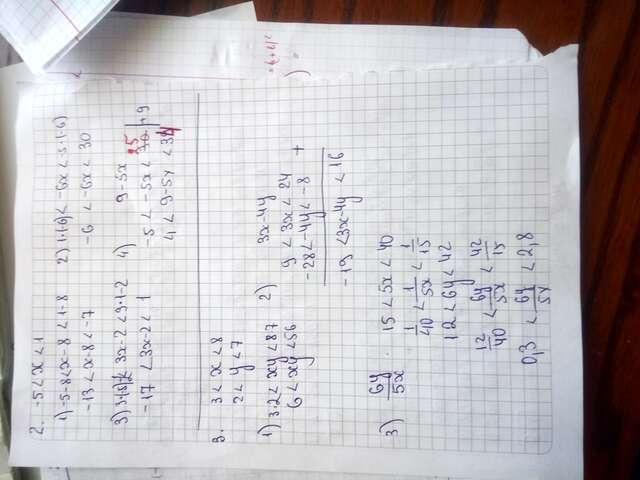 2. -5 < x < 1
1) -5-8 < x-8 < 1-8
-13 < x-8 < -7
2) 1·(-6) < -6x <
-6 < -6x < 30
3) 3x-2 < 3·1-2
-17 < 3x-2 < 1
4) 9-5x
-5 < -5x < 25 | +9
4 < 9-5x < 34
3. 3 < x < 8
2 < y < 7
1) 3·2 < xy < 8·7
6 < xy < 56
2) 3x-4y
9 < 3x < 24
-28 < -4y < -8 +
-19 < 3x-4y < 16
3) 6y/5x 15 < 5x < 40
1/40 < 1/5x < 1/15
12 < 6y < 42
12/40 < 6y/5x < 42/15
0,3 < 6y/5x < 2,8